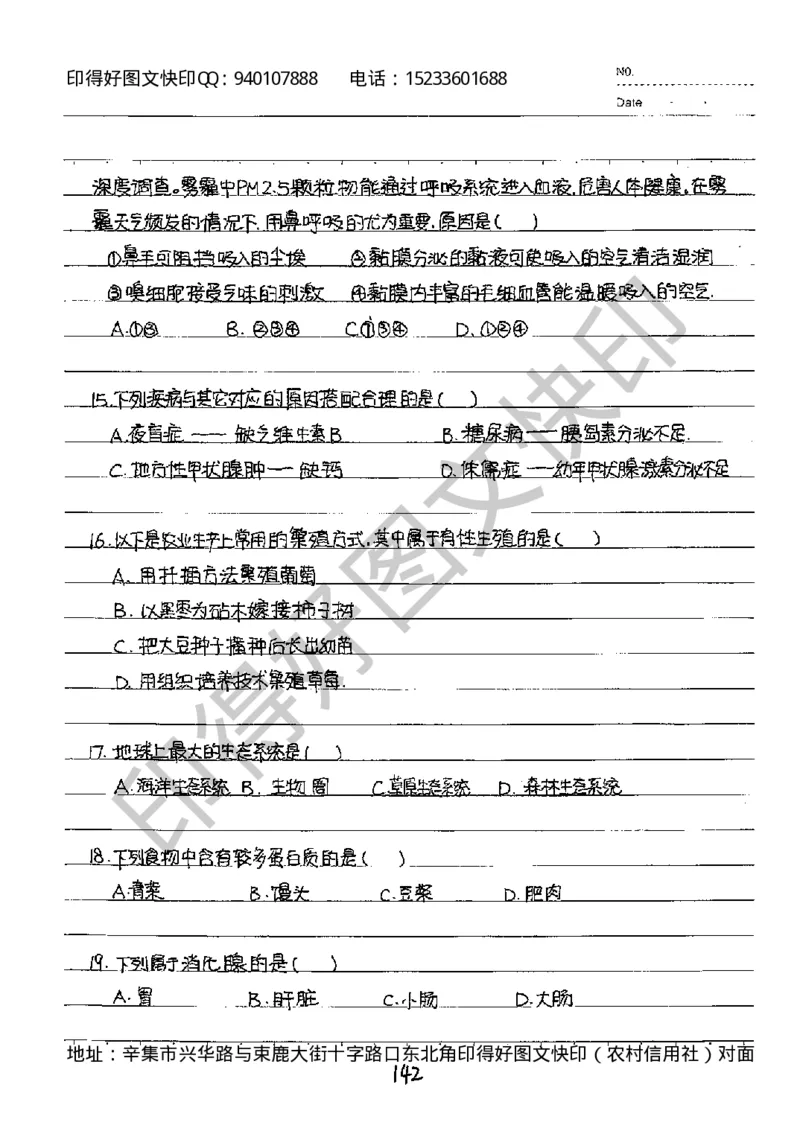 印得好图文快印QQ：940107888 电话：15233601688
NO.
Date
深度调查。雾霾中PM2.5颗粒物能通过呼吸系统进入血液,危害人体健康,在雾
霾天气频发的情况下,用鼻呼吸的尤为重要,原因是( )
①鼻毛可阻挡吸入的尘埃 ②黏膜分泌的黏液可使吸入的空气清洁湿润
③嗅细胞接受气味的刺激 ④黏膜内丰富的毛细血管能温暖吸入的空气.
A.①③ B. ②③④ C.①③④ D.①②④
15.下列疾病与其它对应的原因搭配合理的是( )
A.夜盲症 —— 缺乏维生素B B.糖尿病——胰岛素分泌不足.
C.地方性甲状腺肿—缺钙 D.侏儒症 —幼年甲状腺激素分泌不足
16.以下是农业生产上常用的繁殖方式,其中属于有性生殖的是( )
A. 用扦插方法繁殖葡萄
B. 以黑枣为砧木嫁接柿子树
C. 把大豆种子播种后长出幼苗
D. 用组织培养技术繁殖草莓.
17. 地球上最大的生态系统是( )
A.海洋生态系统 B. 生物圈 C.草原生态系统 D. 森林生态系统
18.下列食物中含有较多蛋白质的是( )
A.青菜 B.馒头 C.豆浆 D.肥肉
19.下列属于消化腺的是( )
A.胃 B.肝脏 C.小肠 D.大肠
地址：辛集市兴华路与束鹿大街十字路口东北角印得好图文快印（农村信用社）对面
142
印得好图文快印